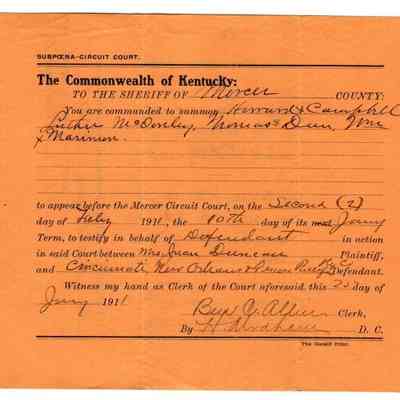 SUBPŒNA-CIRCUIT COURT.
The Commonwealth of Kentucky:
TO THE SHERIFF OF Mercer COUNTY:
You are commanded to summon Howard Campbell
Luther McDonley, Thomas Dunn,
Marimon
to appear before the Mercer Circuit Court, on the Second (2)
day of Feby 1911, the 10th day of its next Jany
Term, to testify in behalf of Defendant in action
in said Court between Mrs Duncan Plaintiff,
and Cincinnati New Orleans & Defendant.
Witness my hand as Clerk of the Court aforesaid, this day of
Jany 1911 Clerk,
By D. C.
The Herald Print.